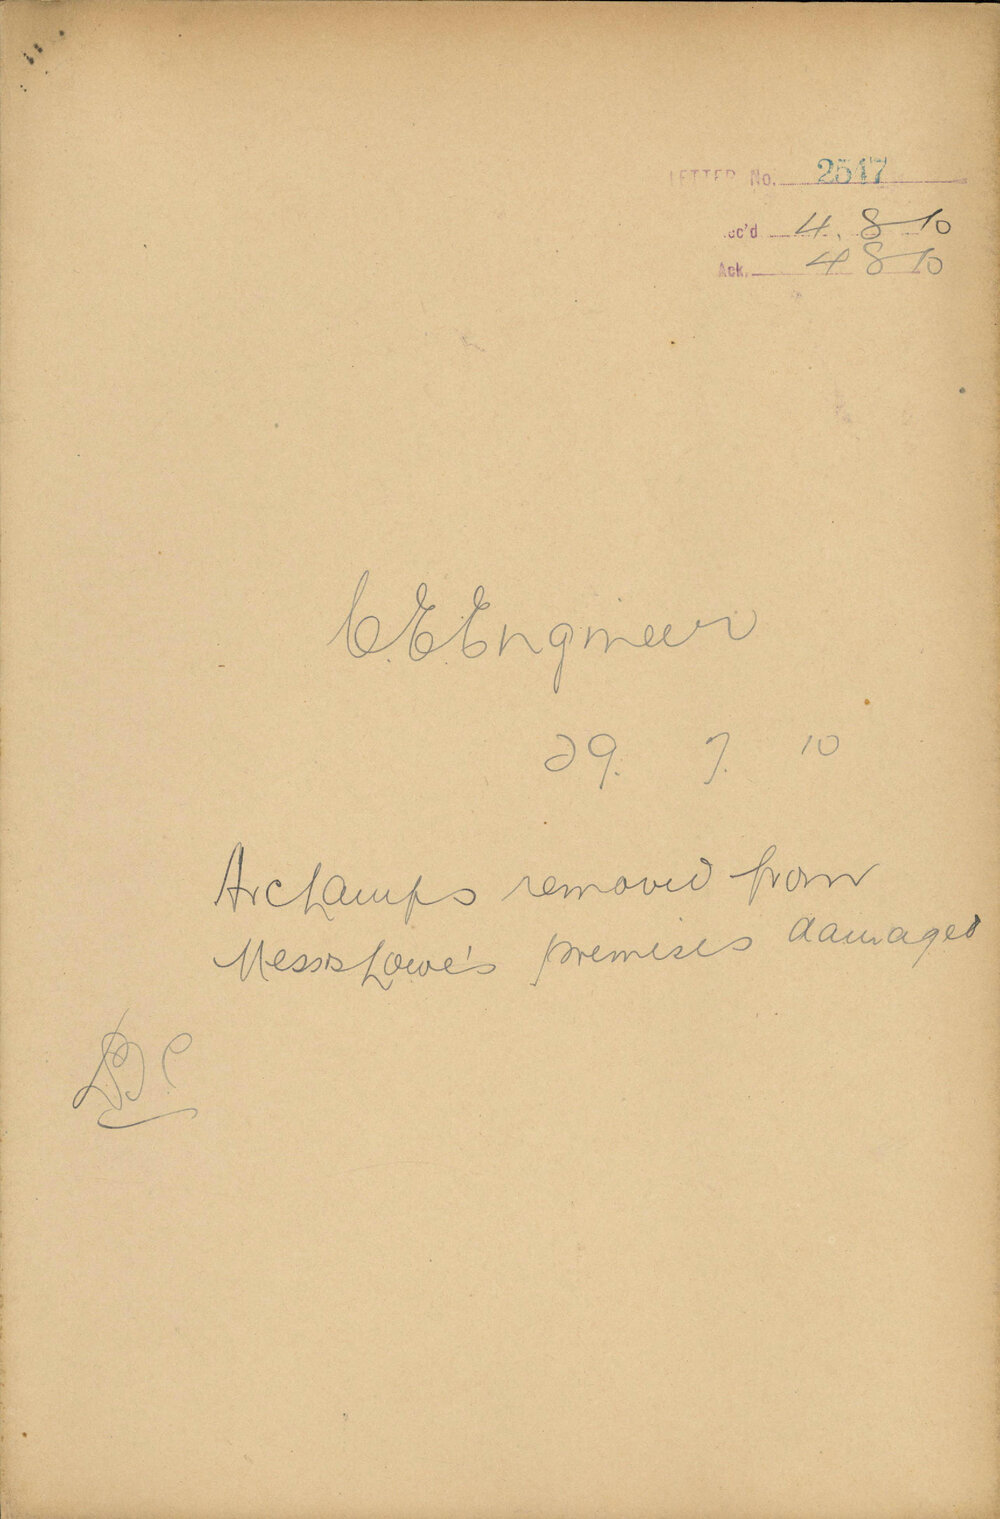 LETTER No. 2517
Rec'd 4.8.10
Ack. 4 8 10
C.E.Engineer
29. 7. 10
Arc Lamps removed from
Messrs Lowe's premises damaged